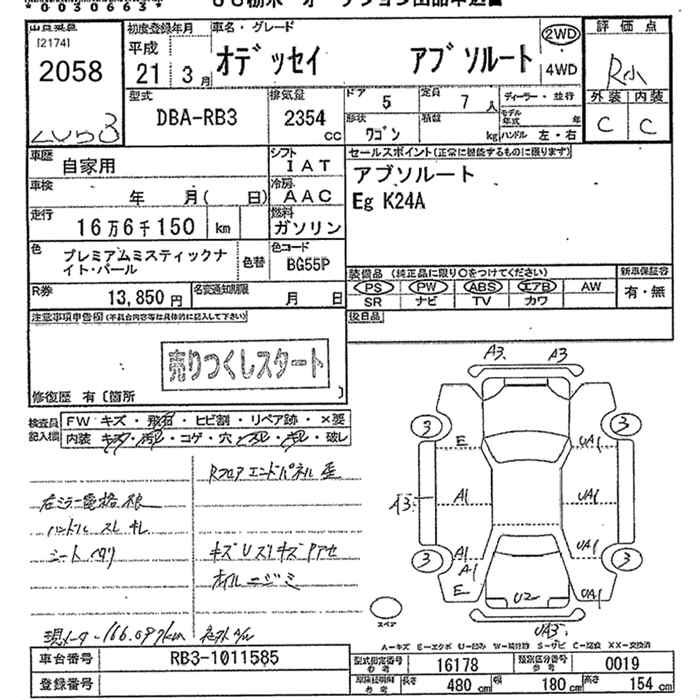 *0030663*
出品票
[2174]
2058
初度登録年月
平成
21 3月
車名・グレード
オデッセイ アブソルート
2WD
4WD
評価点
R小
外装 内装
C C
型式
DBA-RB3
排気量
2354 cc
ドア 5
定員 7人
形状 ワゴン
積載 kg
ディーラー・並行
モデル年式 年
ハンドル 左・右
車歴 自家用
シフト IAT
車検 年 月( 日)
冷房 AAC
走行 16万6千150 km
燃料 ガソリン
色 プレミアムミスティックナイト・パール
色替
色コード BG55P
R券 13,850円
名変通知期限 月 日
セールスポイント(正常に機能するものに限ります)
アブソルート
Eg K24A
装備品 (純正品に限り○をつけてください)
PS PW ABS エアB AW
SR ナビ TV カワ
新車保証書
有・無
後日品
注意事項申告欄(不具合内容等は具体的に記入して下さい)
売りつくしスタート
修復歴 有〔箇所 〕
検査員記入欄
FW キズ・飛石・ヒビ割・リペア跡・×要
内装 キズ・汚れ・コゲ・穴・スレ・キレ・破レ
Rフロアエンドパネル歪
右ミラー電格
ハンドル スレ
シート
オイルニジミ
A3 A3
3 3
E UA1
A3 A1 UA1
UA1
3 3
A1 UA1
A1
E U2 UA1
UA3
スペア
A=キズ E=エクボ U=凹み W=補修跡 S=サビ C=腐食 XX=交換済
車台番号 RB3-1011585
登録番号
型式指定番号 参考 16178
類別区分番号 参考 0019
参考 長さ 480cm 幅 180cm 高さ 154cm